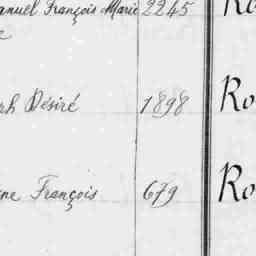 François Marie 2245 Ro
Désiré 1898 Ro
François 679 Ro